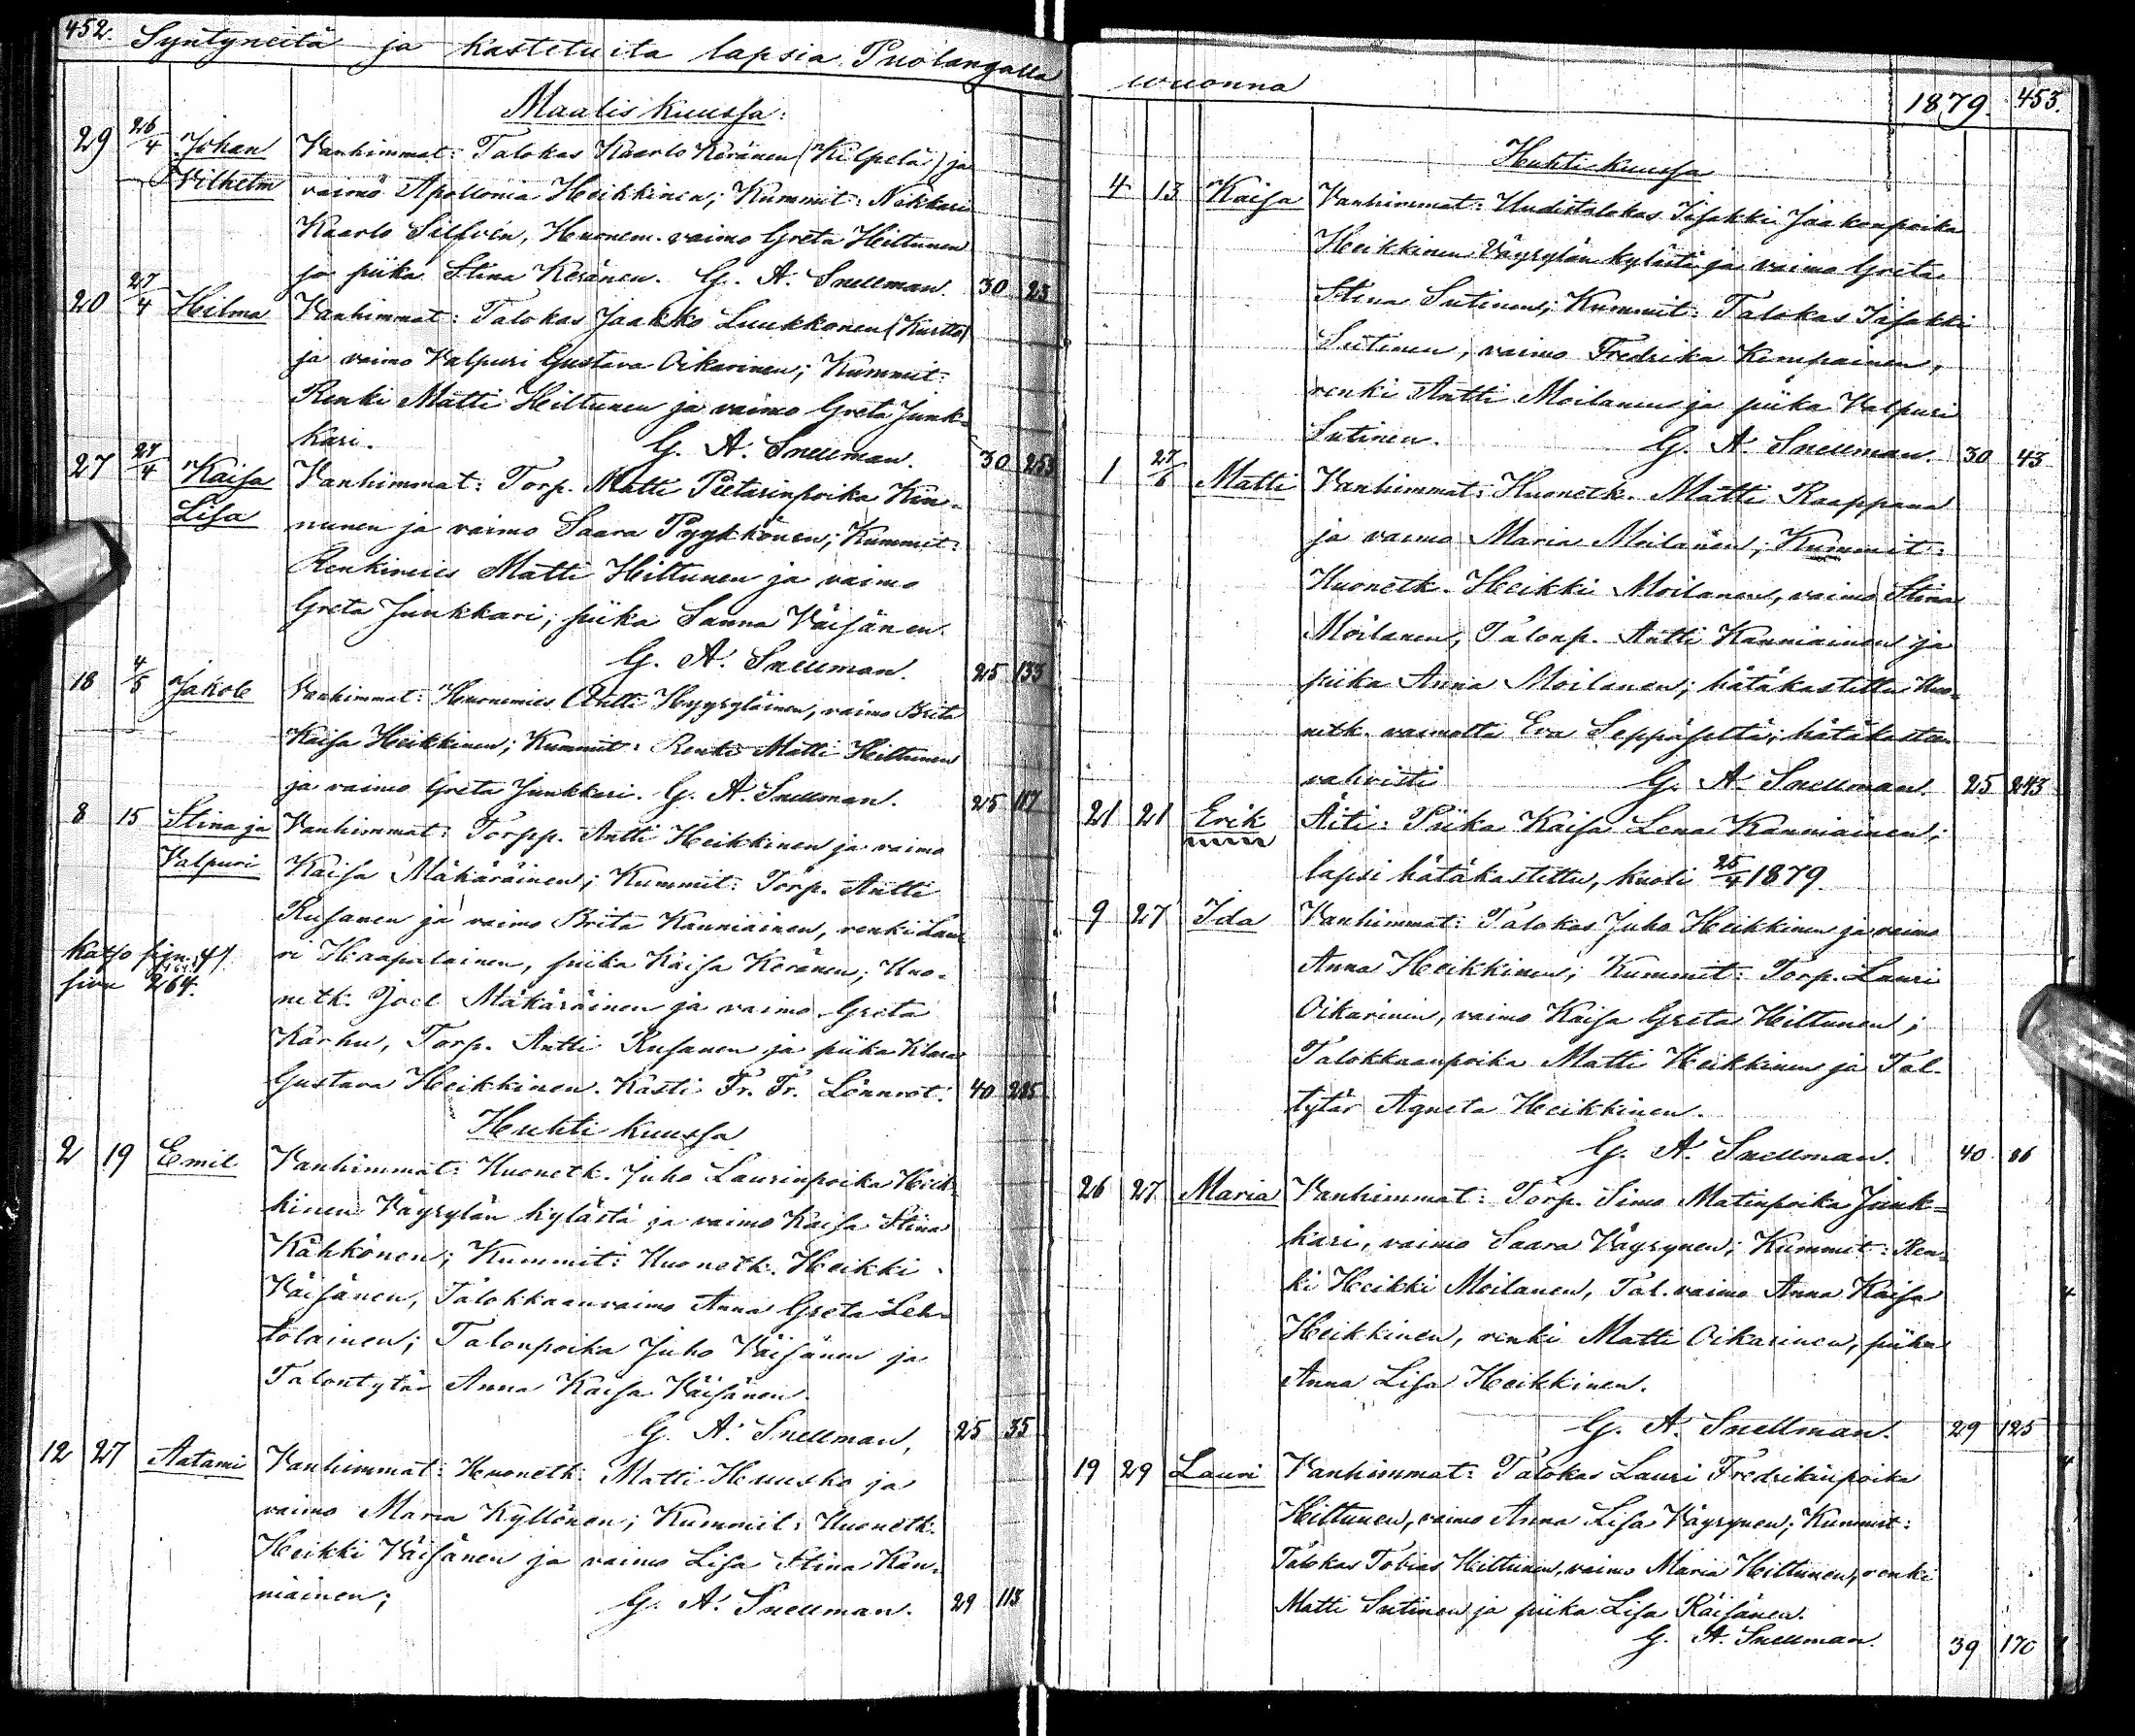 452. Syntyneitä ja kastetuita lapsia Puolangalla
Maaliskuussa:
29 26/4 Johan Vanhimmat: Talokas Kaarlo Keränen (Kilpelä) ja
Vilhelm vaimo Apollonia Heikkinen; Kummit: Nikkari
Kaarlo Silfvén, Huonem. vaimo Greta Hiltunen
ja piika Stina Keränen. G. A. Snellman. 30 23
20 27/4 Hilma Vanhimmat: Talokas Jaakko Luukkonen (Kurtto)
ja vaimo Valpuri Gustava Oikarinen; Kummit:
Renki Matti Hiltunen ja vaimo Greta Junk-
kari. G. A. Snellman. 30 253
27 27/4 Kaisa Vanhimmat: Torp. Matti Pietarinpoika Kin-
Lisa nunen ja vaimo Saara Pyykkönen; Kummit:
Renkimies Matti Hiltunen ja vaimo
Greta Junkkari; piika Sanna Väisänen.
G. A. Snellman. 25 133
18 4/5 Jakob Vanhimmat: Huonemies Antti Hyyryläinen, vaimo Brita
Kaisa Heikkinen; Kummit: Renki Matti Hiltunen
ja vaimo Greta Junkkari. G. A. Snellman. 25 117
8 15 Stina ja Vanhimmat: Torpp. Antti Heikkinen ja vaimo
Valpuri Kaisa Mäkäräinen; Kummit: Torp. Antti
Rusanen ja vaimo Brita Kanniainen, renki Lau-
ri Haapalainen, piika Kaisa Keränen; Huo-
katso
sivu 264.
netk. Joel Mäkäräinen ja vaimo Greta
Karhu, Torp. Antti Rusanen ja piika Klara
Gustava Heikkinen. Kasti Fr. Fr. Lönnrot. 40 285
Huhtikuussa
2 19 Emil Vanhimmat: Huonetk. Juho Laurinpoika Heik-
kinen Väyrylän kylästä ja vaimo Kaisa Stina
Kähkönen; Kummit: Huonetk. Heikki
Väisänen, Talokkaanvaimo Anna Greta Leh-
tolainen; Talonpoika Juho Väisänen ja
Talontytär Anna Kaisa Väisänen.
G. A. Snellman, 25 35
12 27 Aatami Vanhimmat: Huonetk. Matti Heusko ja
vaimo Maria Kyllönen; Kummit: Huonetk.
Heikki Väisänen ja vaimo Lisa Stina Kan-
niainen; G. A. Snellman. 29 113
wuonna 1879. 453.
Huhtikuussa
4 13 Kaisa Vanhimmat: Uudistalokas Iisakki Jaakonpoika
Heikkinen Väyrylän kylästä ja vaimo Greta
Stina Sutinen; Kummit: Talokas Iisakki
Sutinen, vaimo Fredrika Kempainen,
renki Antti Moilanen ja piika Valpuri
Sutinen. G. A. Snellman. 30 43
1 27/6 Matti Vanhimmat: Huonetk. Matti Raappana
ja vaimo Maria Moilanen; Kummit:
Huonetk. Heikki Moilanen, vaimo Stina
Moilanen, Talonp. Antti Kanniainen ja
piika Anna Moilanen; hätäkastettu Huo-
netk. vaimolta Eva Seppäseltä; hätäkasteen
vahvisti G. A. Snellman. 25 243
21 21 Erik Äiti: Piika Kaisa Lena Kanniainen;
lapsi hätäkastettu, kuoli 25/4 1879.
9 27 Ida Vanhimmat: Talokas Juho Heikkinen ja vaimo
Anna Heikkinen; Kummit: Torp. Lauri
Oikarinen, vaimo Kaisa Greta Hiltunen;
Talokkaanpoika Matti Heikkinen ja Tal.
tytär Agneta Heikkinen.
G. A. Snellman. 40 86
26 27 Maria Vanhimmat: Torp. Simo Matinpoika Junk-
kari, vaimo Saara Väyrynen; Kummit: Ren-
ki Heikki Moilanen, Tal. vaimo Anna Kaisa
Heikkinen, renki Matti Oikarinen, piika
Anna Lisa Heikkinen.
G. A. Snellman. 29 125
19 29 Lauri Vanhimmat: Talokas Lauri Fredrikinpoika
Hiltunen, vaimo Anna Lisa Väyrynen; Kummit:
Talokas Tobias Hiltunen, vaimo Maria Hiltunen, renki
Matti Sutinen ja piika Lisa Räisänen.
G. A. Snellman. 39 170